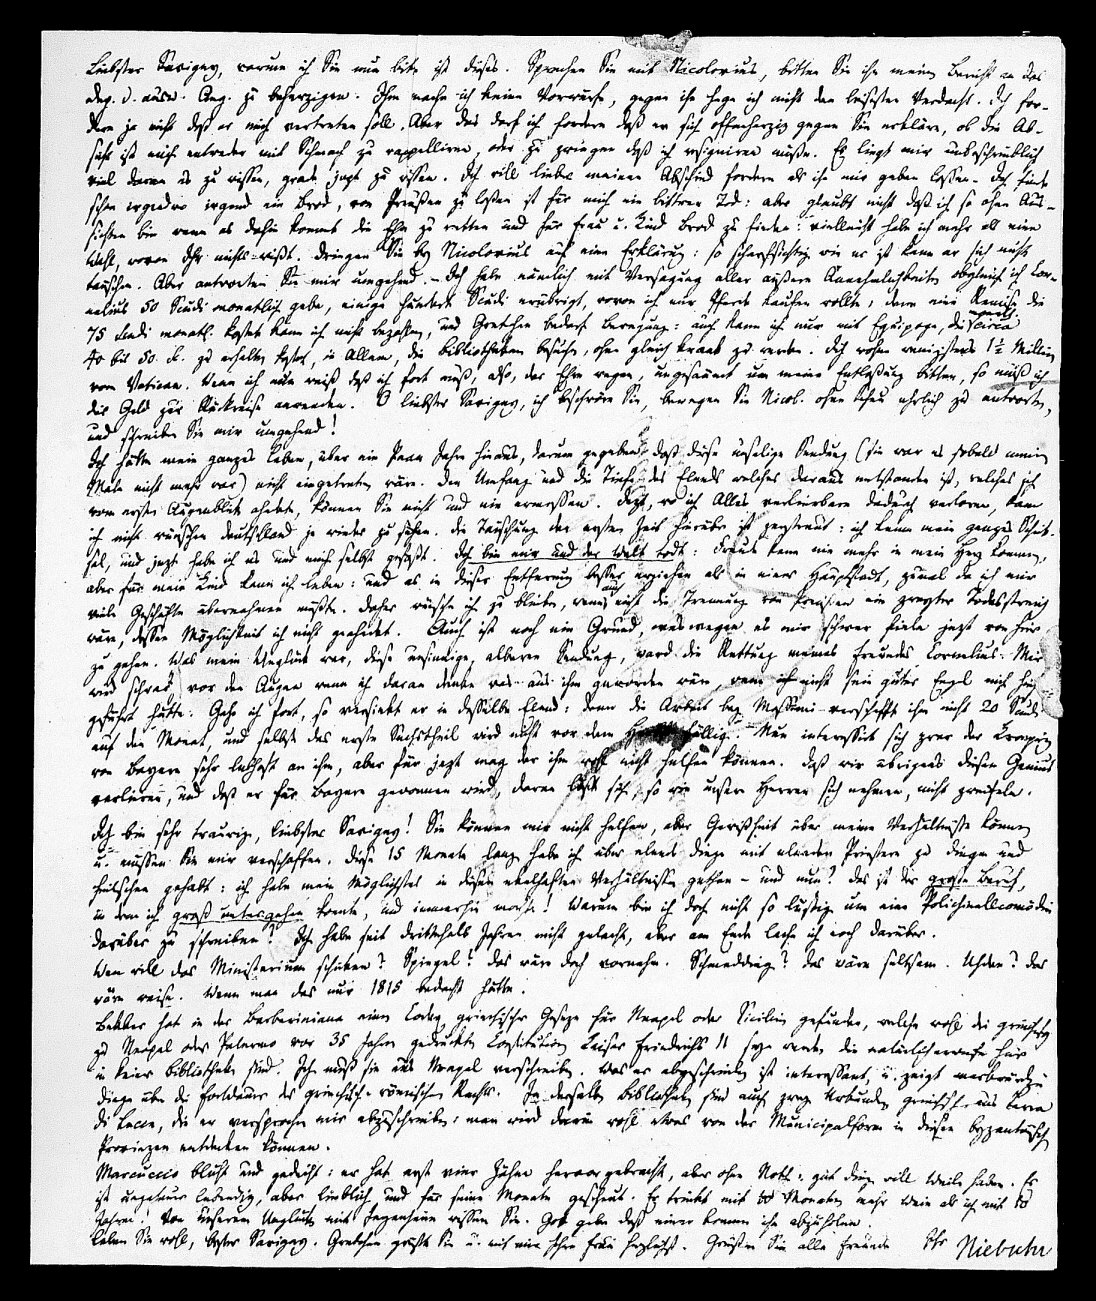 Liebster Savigny, warum ich Sie nun bitte ist dieses. Sprechen Sie mit Nicolovius, bitten Sie ihn meinen Bericht an das
dep. d. ausw. Ang. zu beherzigen. Ihm mache ich keine Vorwürfe, gegen ihn hege ich nicht den leisesten Verdacht. Ich for-
dere ja nicht daß er mich vertreten soll. Aber das darf ich fordern daß er sich offenherzig gegen Sie erkläre, ob die Ab-
sicht ist mich entweder mit Schmach zu rappelliren, oder zu zwingen daß ich resigniren müße. Es liegt mir unbeschreiblich
viel daran es zu wissen, grade jezt zu wissen. Ich will lieber meinen Abschied fordern als ihn mir geben lassen. Ich finde
schon irgendwo irgend ein Brod, von Preußen zu lassen ist für mich ein bittrer Tod: aber glaubt nicht daß ich so ohne Aus-
sichten bin wenn es dahin kommt die Ehre zu retten und für Frau u. Kind Brod zu finden: vielleicht habe ich mehr als eine
Wahl, wovon Ihr nichts wißt. Dringen Sie bey Nicolovius auf eine Erklärung: so scharfsichtig wie er ist kann er sich nicht
täuschen. Aber antworten Sie mir umgehend. – Ich habe nämlich mit Versagung aller äußern Annehmlichkeiten obgleich ich Cor-
nelius 50 Scudi monatlich gebe, einige hundert Scudi erübrigt, wovon ich mir Pferde kaufen wollte, denn eine Remise die
75 Scudi monatl. kostet kann ich nicht bezahlen, und Gretchen bedarf Bewegung: auch kann ich nur mit Equipage, die circa
40 bis 50 Sc. zu erhalten kostet, in Allem, die Bibliotheken besuchen, ohne gleich krank zu werden. Ich wohne wenigstens 1½ Millien
vom Vatican. Wenn ich nun weiß daß ich fort muß, also, der Ehre wegen, ungesäumt um meine Entlaßung bitten, so muß ich
dies Geld zur Rückreise anwenden. O liebster Savigny, ich beschwöre Sie, bewegen Sie Nicol. ohne Scheu ehrlich zu antworten,
und schreiben Sie mir umgehend!
Ich hätte mein ganzes Leben, über ein Paar Jahre hinaus, darum gegeben daß diese unselige Sendung (sie war es sobald meine
Male nicht mehr war) nicht eingetreten wäre. Den Umfang und die Tiefe des Elends welches daraus entstanden ist, welches ich
vom ersten Augenblick ahndete, können Sie nicht und nie ermessen. Jezt, wo ich Alles verlierbare dadurch verloren, kann
ich nicht wünschen Deutschland je wieder zu sehen. Die Täuschung der ersten Zeit hierüber ist zerstreut: ich kenne mein ganzes Schick-
sal, und jezt habe ich es und mich selbst gefaßt. Ich bin mir und der Welt todt: Freude kann nie mehr in mein Herz kommen,
aber für mein Kind kann ich leben: und es in dieser Entfernung besser erziehen als in einer Hauptstadt, zumal da ich nur
viele Geschäfte übernehmen müßte. Daher wünsche ich zu bleiben, wenn auch nicht die Trennung von Preußen ein zweyter Todesstreich
wäre, dessen Möglichkeit ich nicht geahndet. Auch ist noch ein Grund, weswegen es mir schwer fiele jezt von hier
zu gehen. Was mein Unglück war, diese unsinnige, alberne Sendung, ward die Rettung meines Freundes Cornelius. Mir
wird schwarz vor den Augen wenn ich daran denke was aus ihm geworden wäre wenn ich nicht sein guter Engel mich hier
geführt hätte. Gehe ich fort, so versinkt er in dasselbe Elend: denn die Arbeit bey Massimi verschafft ihm nicht 20 Scudi
auf den Monat, und selbst das erste Sechstheil wird nicht vor dem fällig. Nun interessirt sich zwar der Kronprinz
von Bayern sehr lebhaft an ihm, aber für jezt mag der ihm wohl nicht helfen können. Daß wir übrigens diesen Genius
verlieren, und daß er für Bayern gewonnen wird, daran läßt sich, so wie unsere Herren sich nehmen, nicht zweifeln.
Ich bin sehr traurig, liebster Savigny! Sie können mir nicht helfen, aber Gewißheit über meine Verhältnisse können
u. müssen Sie mir verschaffen. Diese 15 Monate lang habe ich über elende Dinge mit elenden Priestern zu dingen und
feilschen gehabt: ich habe mein Möglichstes in diesen ekelhaften Verhältnissen gethan – und nun? Das ist der große Beruf,
in dem ich groß untergehen konnte, und immerhin mochte! Warum bin ich doch nicht so lustig um eine Policinellcomödie
darüber zu schreiben? Ich habe seit dritthalb Jahren nicht gelacht, aber am Ende lache ich noch darüber.
Wen will das Ministerium schicken? Spiegel? das wäre doch vornehm. Schmedding? das wäre seltsam. Uhden? das
wäre weise. Wenn man das nur 1815 bedacht hätte.
Bekker hat in der Barberiniana einen Codex griechischer Geseze für Neapel oder Sicilien gefunden, welche wohl die griechisch
zu Neapel oder Palermo vor 35 Jahren gedruckten Constitutionen Kaiser Friedrichs II seyn werden die natürlicherweise hier
in keiner Bibliothek sind. Ich muß sie aus Neapel verschreiben. Was er abgeschrieben ist interessant, u. zeigt merkwürdige
Dinge über die Fortdauer des griechisch-römischen Rechts. In derselben Bibliothek sind auch zwey Urkunden griechisch aus Terra
di Lecce, die er versprochen mir abzuschreiben: man wird darin wohl etwas von der Municipalform in diesen byzantinischen
Provinzen entdecken können.
Marcuccio blüht und gedeiht: er hat erst vier Zähne hervorgebracht, aber ohne Noth: gut Ding will Weile haben. Er
ist ungeheuer lebendig, aber lieblich, und für seine Monate gescheut. Er trinkt mit 10 Monaten mehr Wein als ich mit 10
Jahren! Von unserem Unglück mit Ingenheim wissen Sie. Gott gebe daß einer komme ihn abzuholen.
Leben Sie wohl, bester Savigny. Gretchen grüßt Sie u. mit mir Ihre Frau herzlichst. Grüßen Sie alle Freunde Ihr Niebuhr